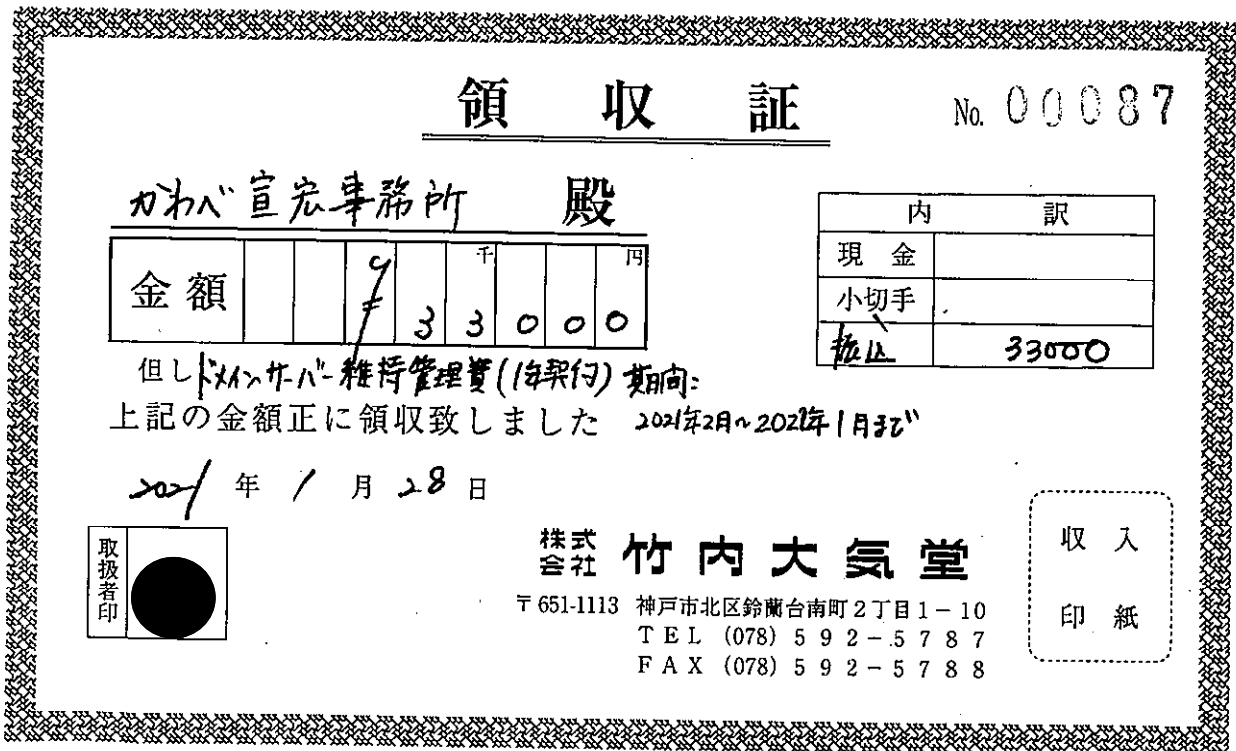 領収証
No. 00087
かわべ宣宏事務所 殿
金額 ¥33000 千 円
内訳
現金
小切手
振込 33000
但しドメインサーバー維持管理費(1年契約) 期間:
上記の金額正に領収致しました 2021年2月~2022年1月まで
2021年1月28日
取扱者印
株式会社 竹内大気堂
〒651-1113 神戸市北区鈴蘭台南町2丁目1-10
TEL (078) 592-5787
FAX (078) 592-5788
収入
印紙